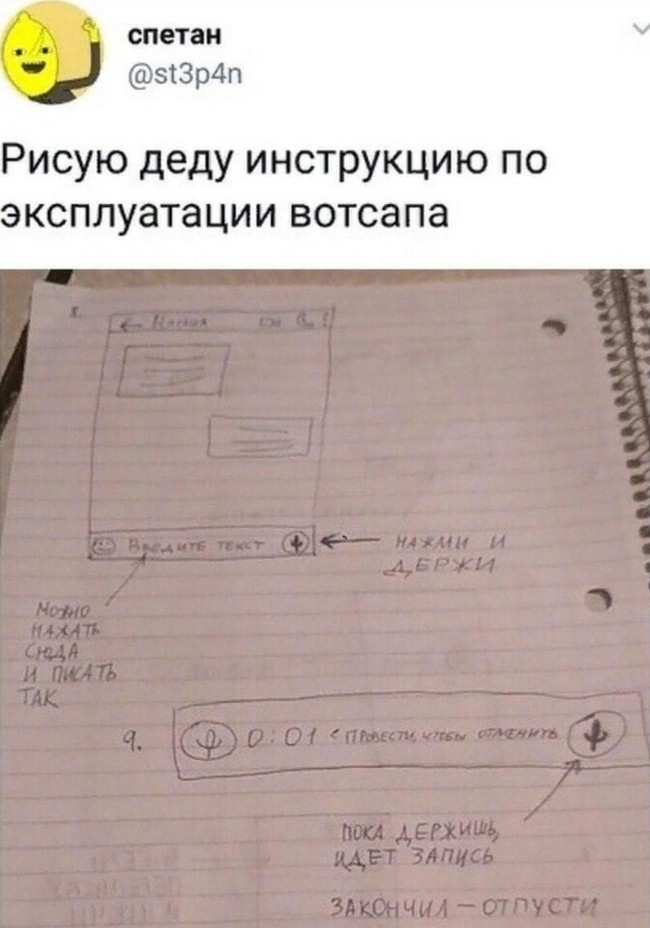 спетан
@st3p4n
Рисую деду инструкцию по
эксплуатации вотсапа
8.
ВВЕДИТЕ ТЕКСТ
НАЖМИ И
ДЕРЖИ
МОЖНО
НАЖАТЬ
СЮДА
И ПИСАТЬ
ТАК
9.
0:01 < ПРОВЕСТИ, ЧТОБЫ ОТМЕНИТЬ
ПОКА ДЕРЖИШЬ,
ИДЕТ ЗАПИСЬ
ЗАКОНЧИЛ — ОТПУСТИ